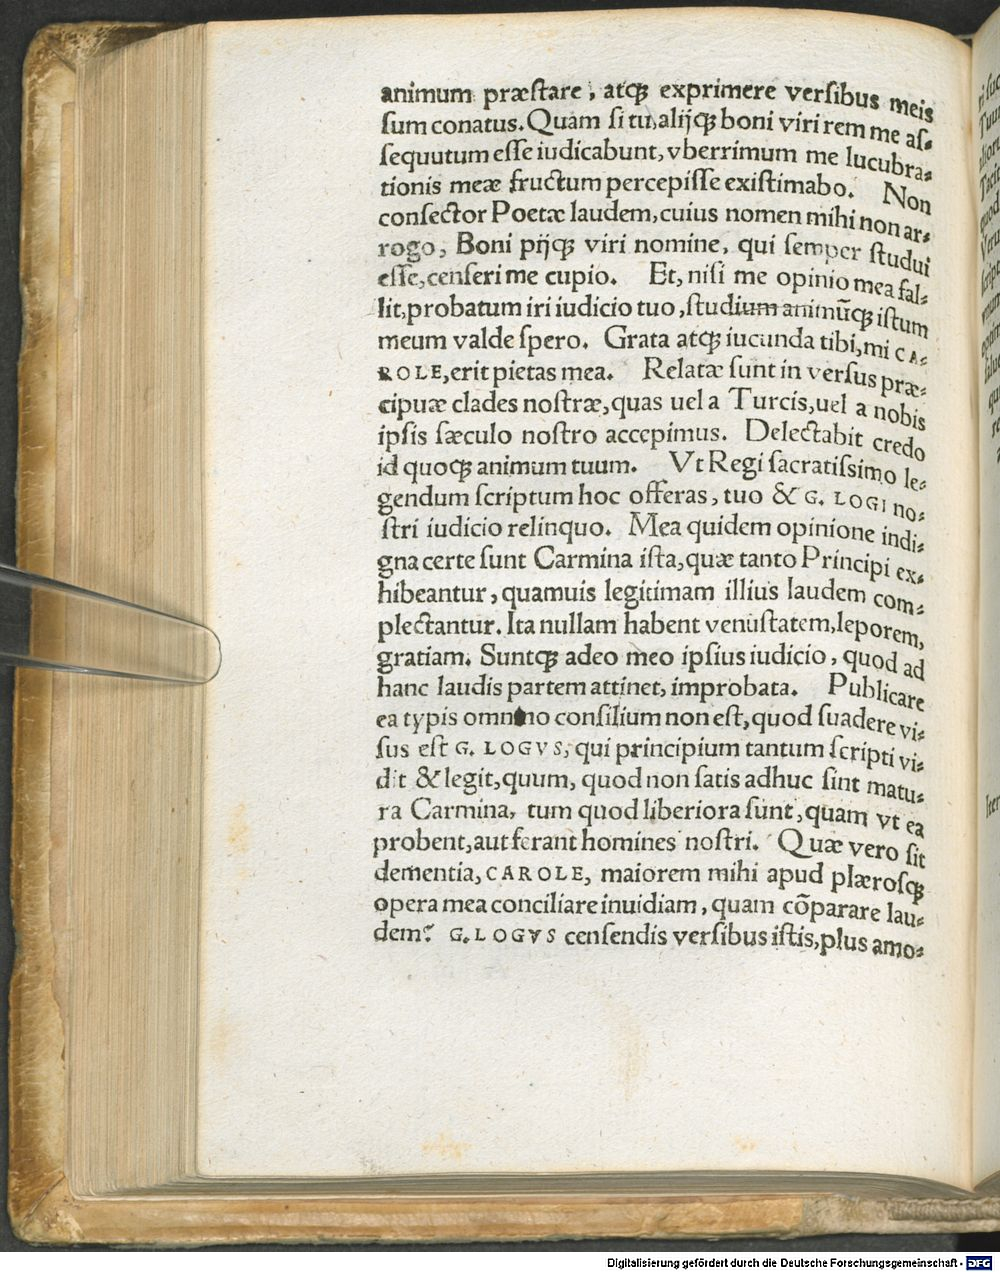 animum præstare, atqꝫ exprimere versibus meis
sum conatus. Quam si tu, alijqꝫ boni viri rem me as⸗
sequutum esse iudicabunt, vberrimum me lucubra⸗
tionis meæ fructum percepisse existimabo. Non
consector Poetæ laudem, cuius nomen mihi non ar⸗
rogo, Boni pijqꝫ viri nomine, qui semper studui
esse, censeri me cupio. Et, nisi me opinio mea fal⸗
lit, probatum iri iudicio tuo, studium animũqꝫ istum
meum valde spero. Grata atqꝫ iucunda tibi, mi CA⸗
ROLE, erit pietas mea. Relatæ sunt in versus præ⸗
cipuæ clades nostræ, quas uel a Turcis, uel a nobis
ipsis sæculo nostro accepimus. Delectabit credo
id quoqꝫ animum tuum. Vt Regi sacratissimo le⸗
gendum scriptum hoc offeras, tuo & G. LOGI no⸗
stri iudicio relinquo. Mea quidem opinione indi⸗
gna certe sunt Carmina ista, quæ tanto Principi ex⸗
hibeantur, quamuis legitimam illius laudem com⸗
plectantur. Ita nullam habent venustatem, leporem,
gratiam. Suntqꝫ adeo meo ipsius iudicio, quod ad
hanc laudis partem attinet, improbata. Publicare
ea typis omnino consilium non est, quod suadere vi⸗
sus est G. LOGVS, qui principium tantum scripti vi⸗
dit & legit, quum, quod non satis adhuc sint matu⸗
ra Carmina, tum quod liberiora sunt, quam vt ea
probent, aut ferant homines nostri. Quæ vero sit
dementia, CAROLE, maiorem mihi apud plærosqꝫ
opera mea conciliare inuidiam, quam cõparare lau⸗
dem? G. LOGVS censendis versibus istis, plus amo⸗
Digitalisierung gefördert durch die Deutsche Forschungsgemeinschaft - DFG